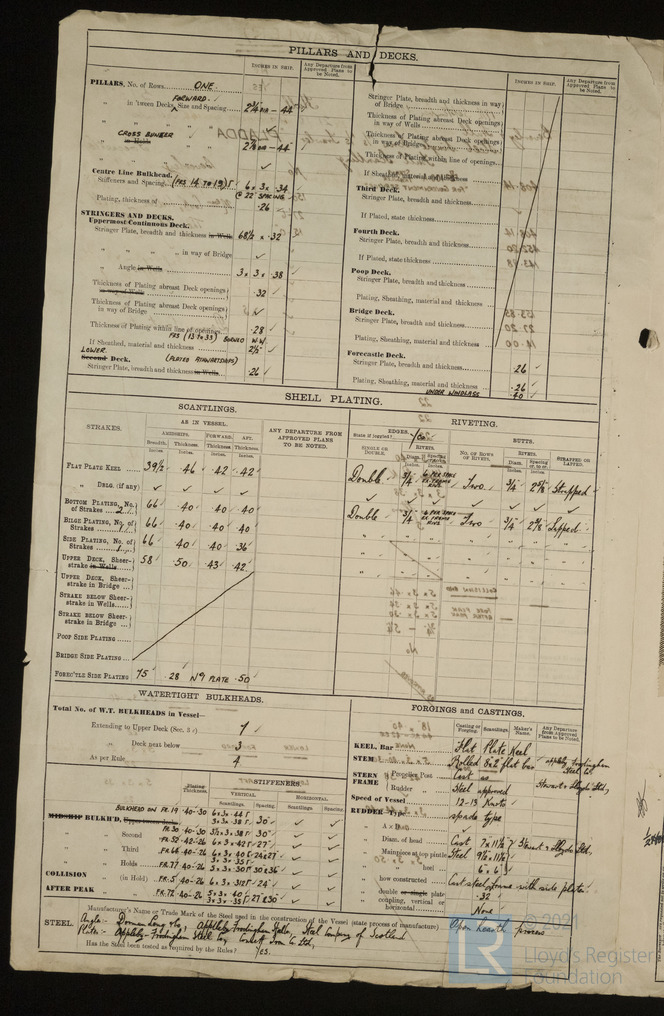 PILLARS AND DECKS.
INCHES IN SHIP.
Any Departure from Approved Plans to be Noted.
PILLARS, No. of Rows ONE
FORWARD
" in 'tween Decks, Size and Spacing 2¾" DIA - 44"
CROSS BUNKER
" in Holds 2⅞ DIA - 44"
Centre Line Bulkhead.
Stiffeners and Spacing (FRS 14 TO 19) 6 x 3 x .34
@ 22" SPACING
Plating, thickness of .26
STRINGERS AND DECKS.
Uppermost Continuous Deck.
Stringer Plate, breadth and thickness in Wells 68½ x .32
" " " in way of Bridge
" Angle in Wells 3 x 3 x .38
Thickness of Plating abreast Deck openings in way of Wells .32
Thickness of Plating abreast Deck openings in way of Bridge
Thickness of Plating within line of openings .28
If Sheathed, material and thickness 2½"
LOWER
Second Deck. (PLATED ATHWARTSHIPS)
Stringer Plate, breadth and thickness in Wells .26
INCHES IN SHIP.
Any Departure from Approved Plans to be Noted.
Stringer Plate, breadth and thickness in way of Bridge
Thickness of Plating abreast Deck openings in way of Wells
Thickness of Plating abreast Deck openings in way of Bridge
Thickness of Plating within line of openings
If Sheathed, material and thickness
Third Deck.
Stringer Plate, breadth and thickness
If Plated, state thickness
Fourth Deck.
Stringer Plate, breadth and thickness
If Plated, state thickness
Poop Deck.
Stringer Plate, breadth and thickness
Plating, Sheathing, material and thickness
Bridge Deck.
Stringer Plate, breadth and thickness
Plating, Sheathing, material and thickness
Forecastle Deck.
Stringer Plate, breadth and thickness .26
Plating, Sheathing, material and thickness .26
UNDER WINDLASS .40
SHELL PLATING.
SCANTLINGS.
STRAKES.
AS IN VESSEL.
AMIDSHIPS. FORWARD. AFT.
Breadth. Thickness. Thickness. Thickness.
Inches. Inches. Inches. Inches.
ANY DEPARTURE FROM APPROVED PLANS TO BE NOTED.
FLAT PLATE KEEL 39½ .46 .42 .42
" DBLG. (if any)
BOTTOM PLATING, No. of Strakes 2 66 .40 .40 .40
BILGE PLATING, No. of Strakes 1 66 .40 .40 .40
SIDE PLATING, No. of Strakes 1 66 .40 .40 .36
UPPER DECK, Sheer-strake in Wells 58 .50 .43 .42
UPPER DECK, Sheer-strake in Bridge
STRAKE BELOW Sheer-strake in Wells
STRAKE BELOW Sheer-strake in Bridge
POOP SIDE PLATING
BRIDGE SIDE PLATING
FOREC'TLE SIDE PLATING 75 .28 Nº 9 PLATE .50
RIVETING.
EDGES.
State if joggled?
SINGLE OR DOUBLE.
RIVETS.
Diam.
BUTTS.
NO. OF ROWS OF RIVETS.
RIVETS.
Diam.
STRAPPED OR LAPPED.
Double ¾ 6 PER SPACE Two ¾ 2⅝ Strapped
Double ¾ 6 PER SPACE Two ¾ 2⅝ Lapped
WATERTIGHT BULKHEADS.
Total No. of W.T. BULKHEADS in Vessel—
Extending to Upper Deck (Sec. 3) 7
Deck next below 3
As per Rule 4
Plating Thickness.
STIFFENERS.
VERTICAL
HORIZONTAL
Scantlings. Spacing. Scantlings. Spacing.
BULKHEAD ON FR.19 .40-.30 30"
MIDSHIP BULKH'D, Upper tween decks
" Second FR.30 .40-.30 30"
" Third FR.66 .40-.26 24 & 27
" Holds FR.77 .40-.26 30 & 36
COLLISION (in Hold) FR.5 .40-.26 24"
AFTER PEAK " FR.72 .40-.26 27 & 30
FORGINGS and CASTINGS.
Casting or Forging. Scantlings. Maker's Name. Any Departure from Approved Plans to be Noted.
KEEL, Bar Flat Plate Keel
STEM Rolled 8x2 flat bar Appleby Frodingham Steel Co.
STERN FRAME Propeller Post Cast as Stewarts & Lloyds Ltd,
Rudder " Steel approved
Speed of Vessel 12-13 Knots
RUDDER—Type spade type
" A x D
" Diam. of head Cast 7 x 11½
" Mainpiece at top pintle Steel 9½ x 11½
" " heel 6" x 6"
" how constructed Cast steel frame with side plates
" double or single plate .32
coupling, vertical or horizontal None
Manufacturer's Name or Trade Mark of the Steel used in the construction of the Vessel (state process of manufacture) Open hearth process
STEEL Angle:- Dorman Long & Co, Appleby Frodingham Steel Co, Steel Company of Scotland
Plate:- Appleby-Frodingham Steel Coy, Consett Iron Co Ltd,
Has the Steel been tested as required by the Rules? Yes.
LR
© 2021
Lloyd's Register
Foundation